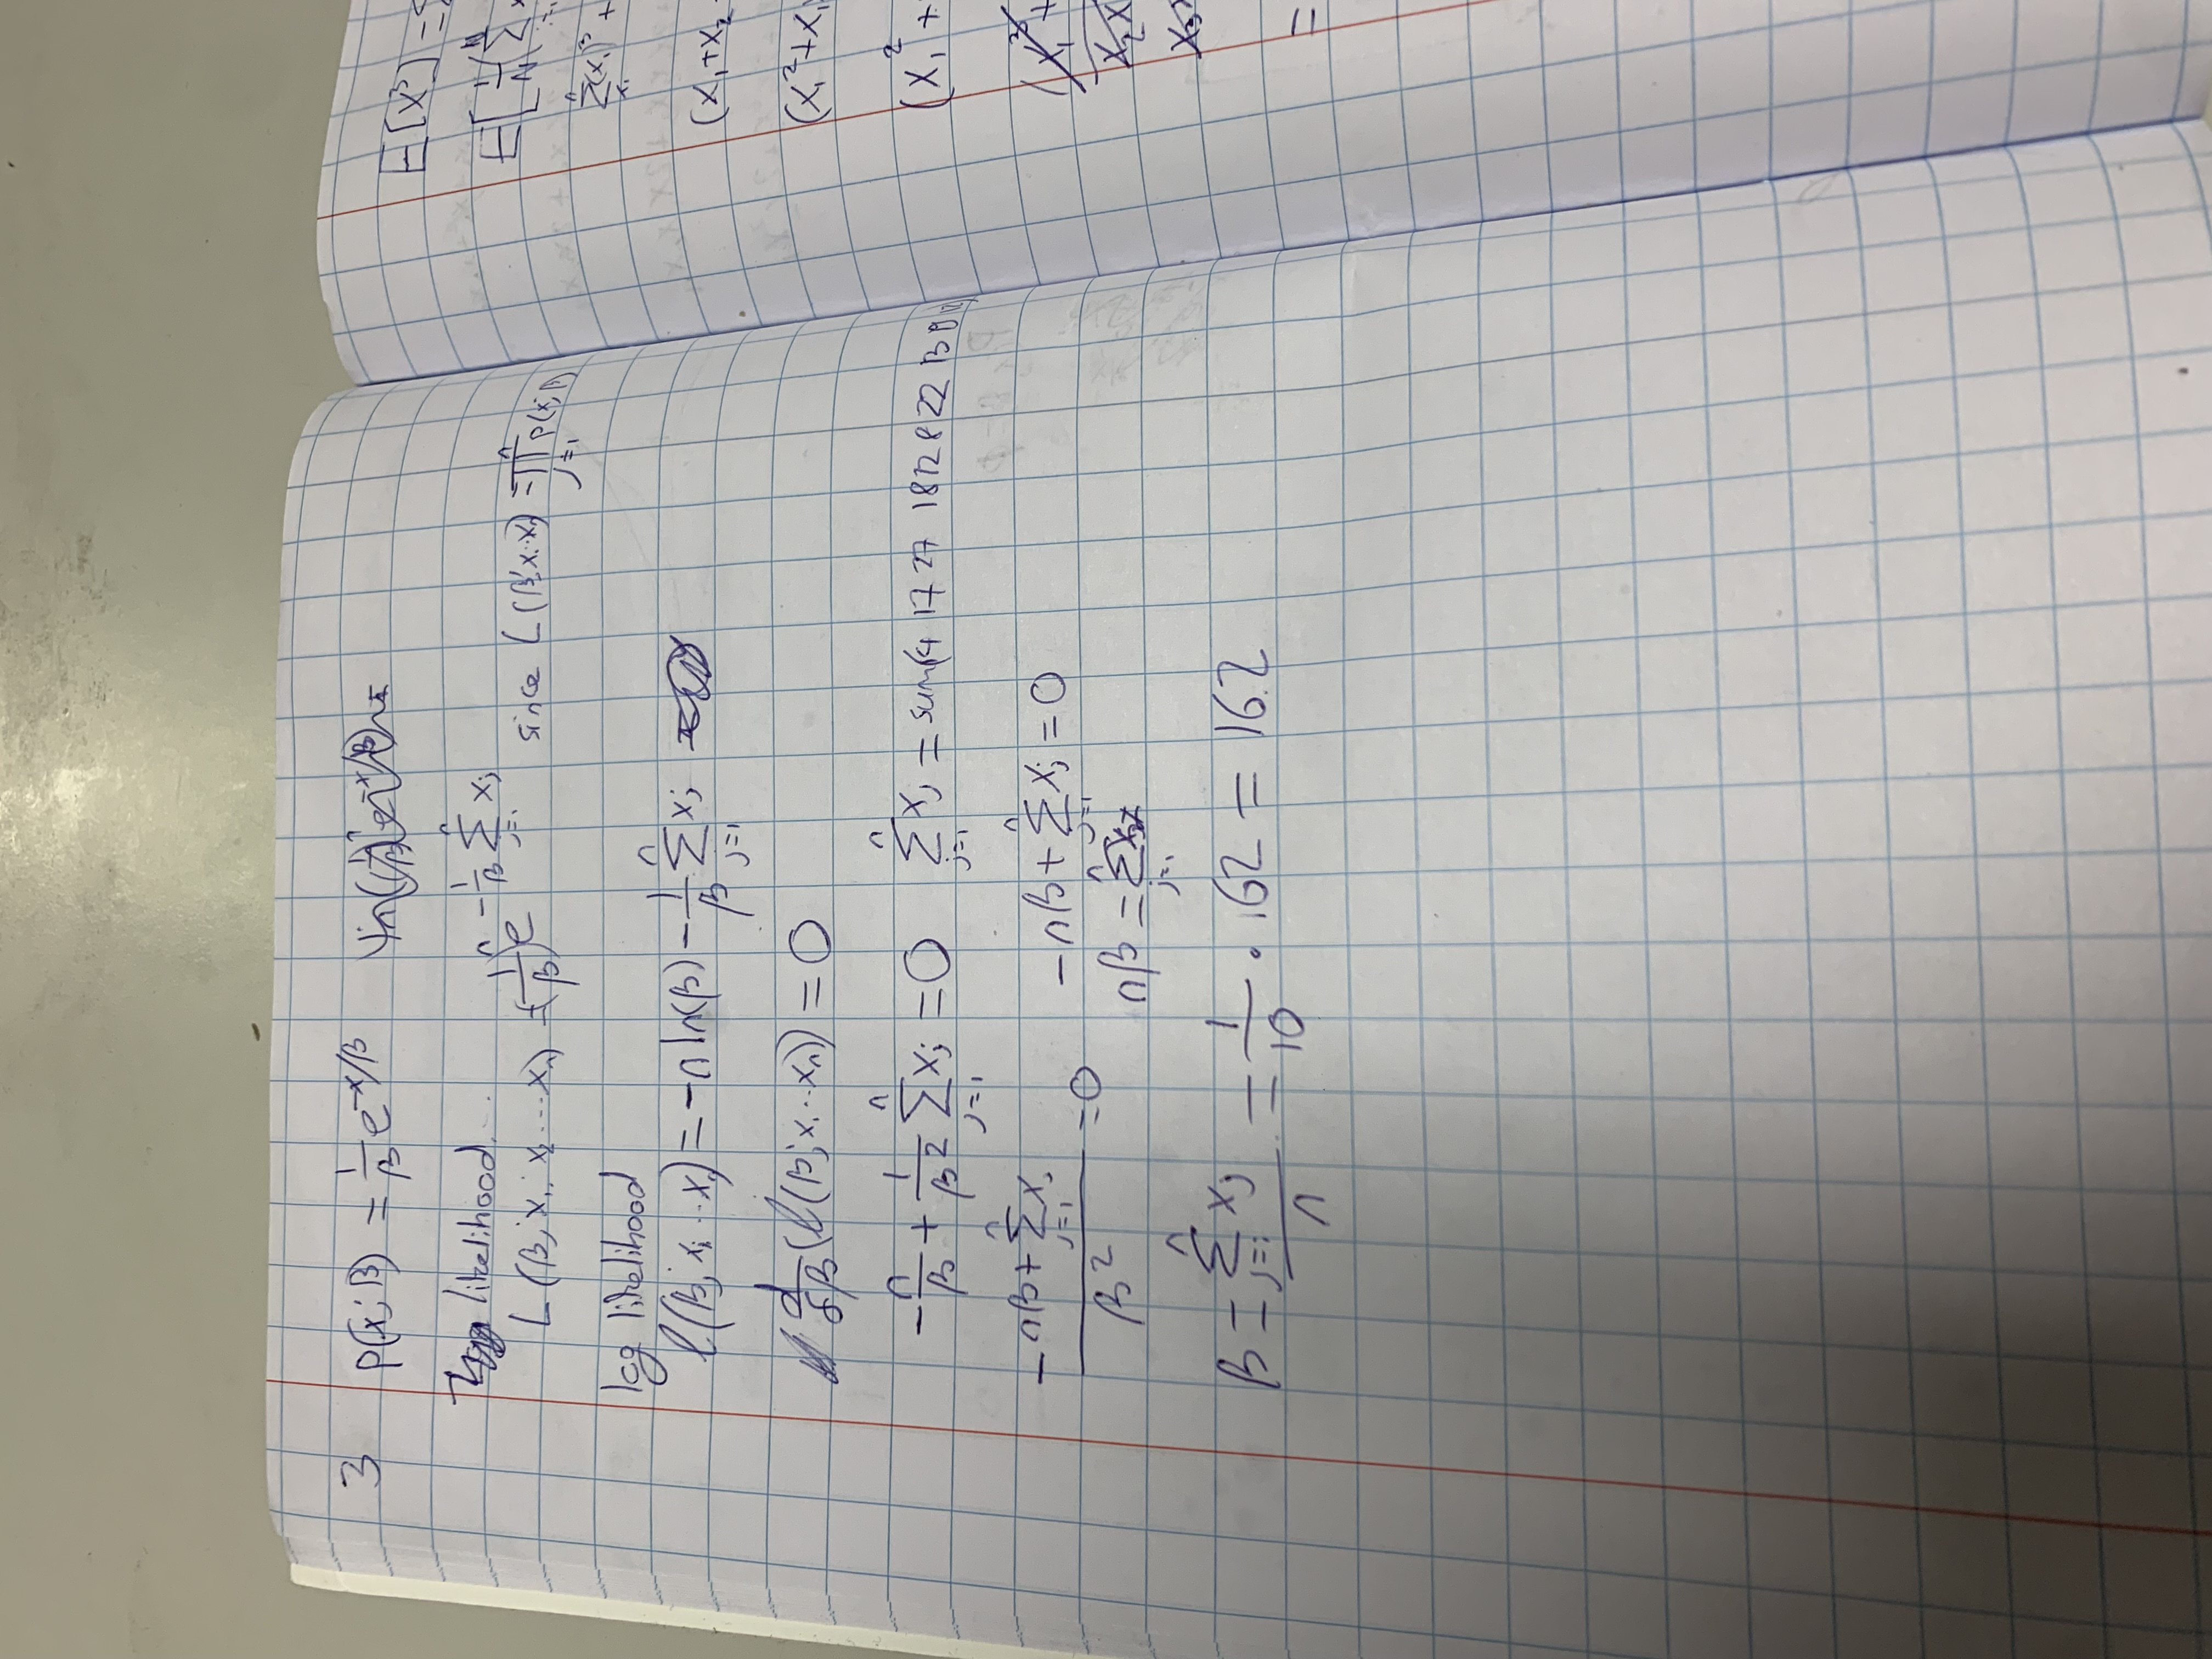 3 p(x; β) = 1/β e^{-x/β}
likelihood...
L(β; x₁, x₂ ... xₙ) = (1/β)ⁿ e^{-1/β Σ_{j=1}^{n} xⱼ} since L(β; x₁..xₙ) = Π_{j=1}^{n} p(x; β)
log likelihood
ℓ(β; x₁ ... xₙ) = -n ln(β) - 1/β Σ_{j=1}^{n} xⱼ
d/δβ (ℓ(β; x₁...xₙ)) = 0
-n/β + 1/β² Σ_{j=1}^{n} xⱼ = 0 Σ_{j=1}^{n} xⱼ = sum(4 17 27 18 12 8 22 13
(-nβ + Σ_{j=1}^{n} xⱼ)/β² = 0 -nβ + Σ_{j=1}^{n} xⱼ = 0
nβ = Σ_{j=1}^{n}
β = Σ_{j=1}^{n} xⱼ / n = 1/10 · 162 = 16.2
E[X³] =
E[1/N (Σ
Σ(x₁)³ +
(x₁+x₂
(x₁²+x₁
(x₁² +
x₂x
x₃
=